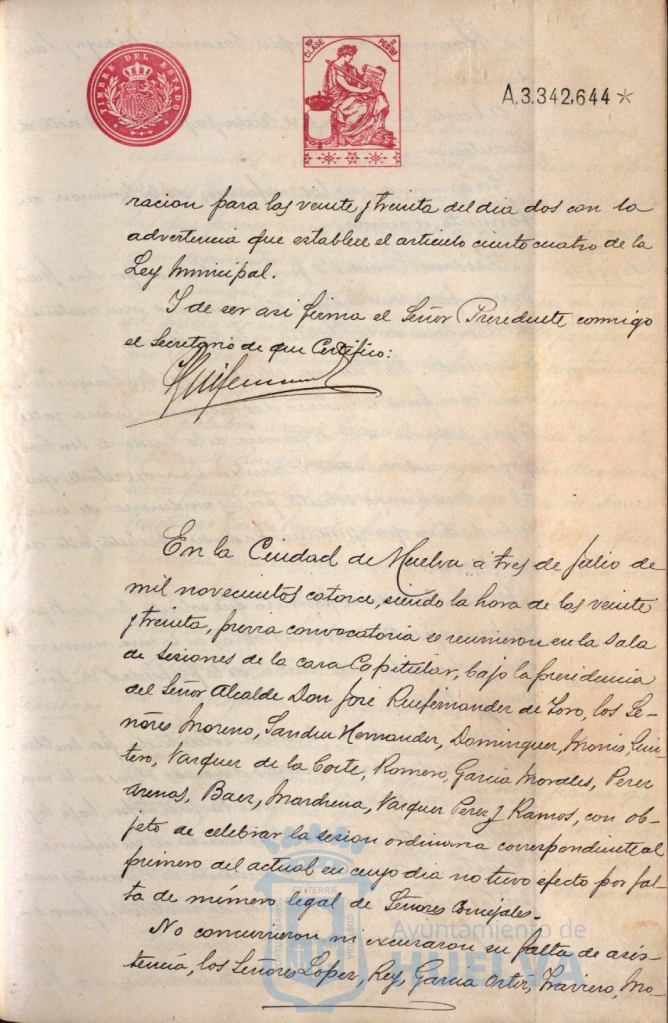 TIMBRE DEL ESTADO
10ª CLASE 2 PESETAS
A.3.342,644 *
racion para las veinte y treinta del dia dos con la
advertencia que establece el articulo ciento cuatro de la
Ley Municipal.
Y de ser asi firma el Señor Presidente conmigo
el Secretario de que Certifico:
En la Ciudad de Huelva á tres de Julio de
mil novecientos catorce, siendo la hora de las veinte
y treinta, previa convocatoria se reunieron en la Sala
de Sesiones de la casa Capitular, bajo la presidencia
del Señor Alcalde Don José de Toro, los Se-
ñores Moreno, Hernandez, Dominguez, Morris, Quin-
tero, Vazquez de la Corte, Romero, Garcia Morales, Perez
Arenas, Baez, Marchena, Vazquez Perez y Ramos, con ob-
jeto de celebrar la sesion ordinaria correspondiente al
primero del actual en cuyo dia no tuvo efecto por fal-
ta de número legal de Señores Concejales.
No concurrieron ni excusaron su falta de asis-
tencia, los Señores Lopez, Rey, Garcia Ortiz, Mo-
Ayuntamiento de
HUELVA